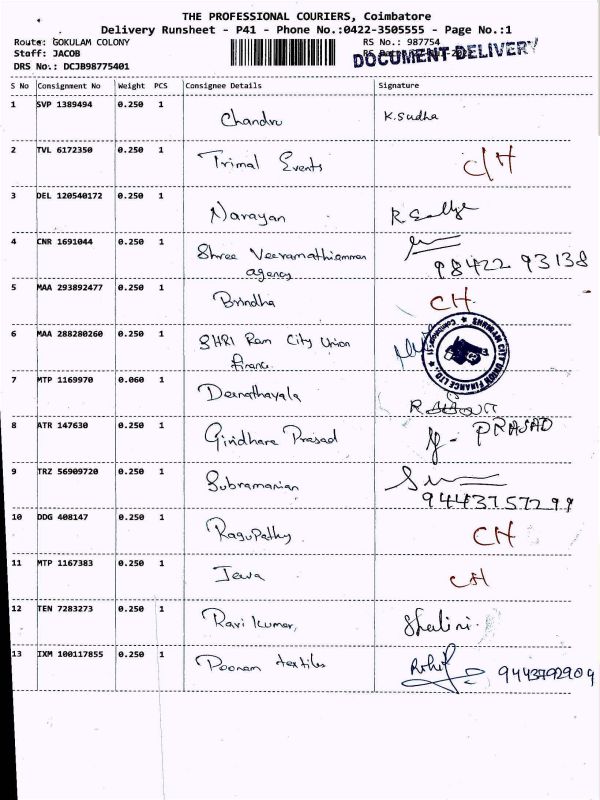 THE PROFESSIONAL COURIERS, Coimbatore
Delivery Runsheet - P41 - Phone No.:0422-3505555 - Page No.:1
Route: GOKULAM COLONY RS No.: 987754
Staff: JACOB
DRS No.: DCJB98775401
DOCUMENT DELIVERY
S No Consignment No Weight PCS Consignee Details Signature
1 SVP 1389494 0.250 1 Chandru K.Sudha
2 TVL 6172350 0.250 1 Trimal Events C/H
3 DEL 120540172 0.250 1 Narayan
4 CNR 1691044 0.250 1 Shree Veeramathiamman
agency 98422 93138
5 MAA 293892477 0.250 1 Brindha CH
6 MAA 288280260 0.250 1 SHRI Ram City Union
Finance
SHRIRAM CITY UNION FINANCE LTD.
7 MTP 1169970 0.060 1 Deenathayala
8 ATR 147630 0.250 1 Giridhara Prasad PRASAD
9 TRZ 56909720 0.250 1 Subramanian
9443757299
10 DDG 408147 0.250 1 Ragupathy CH
11 MTP 1167383 0.250 1 Jeeva CH
12 TEN 7283273 0.250 1 Ravi Kumar, Shalini.
13 IXM 100117855 0.250 1 Poonam textiles Rohit 9443792909